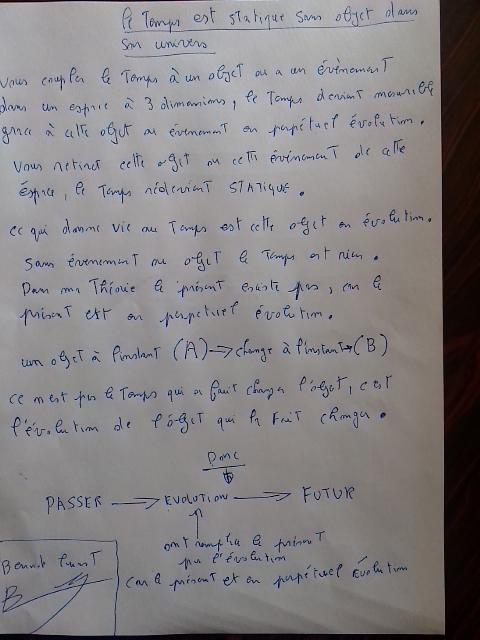 le Temps est statique sans objet dans
son univers
Vous coupler le Temps à un objet ou a un évènement
dans un espace à 3 dimensions, le Temps devient mesurable
grace à cette objet ou évènement en perpétuel évolution.
Vous retirez cette objet ou cette évènement de cette
éspace, le Temps redevient STATIQUE.
ce qui donne vie au Temps est cette objet en évolution.
Sans évenement ou objet le Temps est rien.
Dans ma Théorie le présent existe pas, car le
présent est en perpetuel évolution.
un objet à l'instant (A) → change à l'instant → (B)
ce n'est pas le Temps qui a fait changer l'objet, c'est
l'évolution de l'objet qui l'a fait changer.
Donc
PASSER → EVOLUTION → FUTUR
ont remplace le présent
par l'évolution
car le présent et en perpétuel Évolution
B